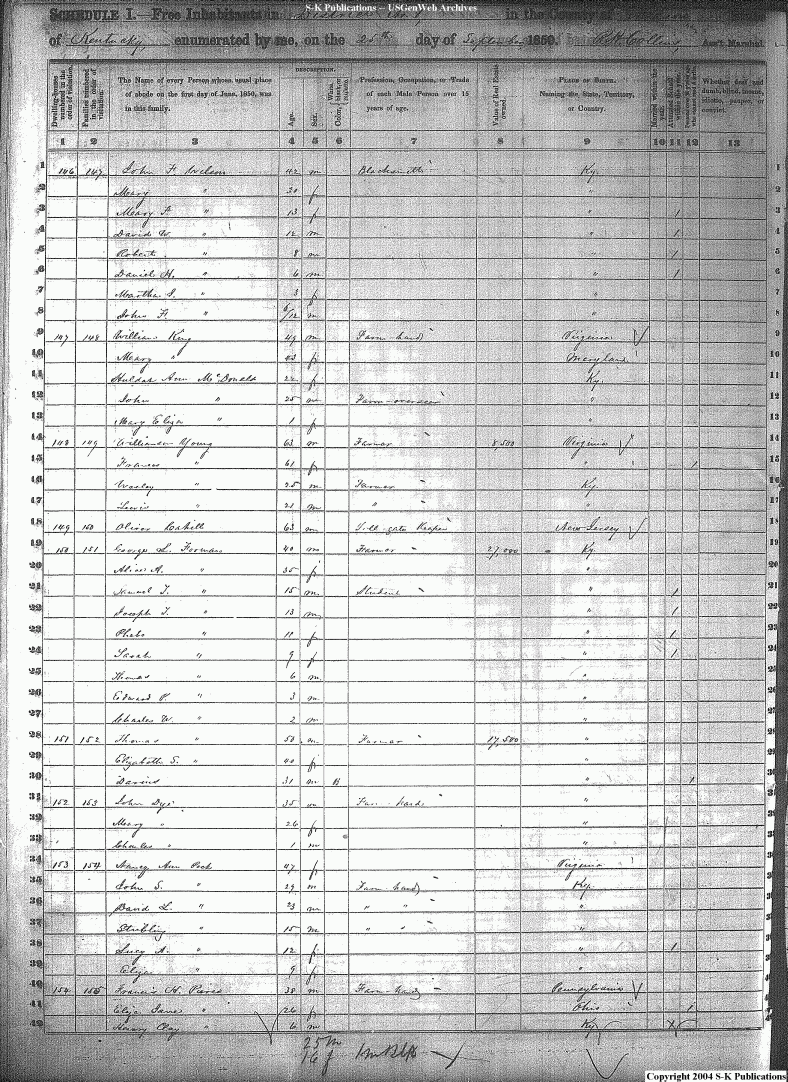 S-K Publications -- USGenWeb Archives
SCHEDULE I. Free Inhabitants in in the County of
of Kentucky enumerated by me, on the 25th day of September 1850. Ass't Marshal.
Dwelling-houses numbered in the order of visitation.
Families numbered in the order of visitation.
The Name of every Person whose usual place of abode on the first day of June, 1850, was in this family.
DESCRIPTION.
Age.
Sex.
White, black, or mulatto.
Profession, Occupation, or Trade of each Male Person over 15 years of age.
Value of Real Estate owned.
PLACE OF BIRTH. Naming the State, Territory, or Country.
Married within the year.
Attended School within the year.
Whether deaf and dumb, blind, insane, idiotic, pauper, or convict.
1 2 3 4 5 6 7 8 9 10 11 12 13
1 146 147 John F. Wilson 42 m Blacksmith Ky. 1
2 Meary " 30 f " 2
3 Meary F. " 13 f " 1 3
4 David W. " 12 m " 1 4
5 Robert " 8 m " 1 5
6 Daniel H. " 6 m " 1 6
7 Martha " 3 f " 7
8 John F. " /12 m " 8
9 147 148 William King 49 m Farm hand Virginia 9
10 Meary " 43 f Maryland 10
11 Huldah Ann McDonald 22 f Ky. 11
12 John " 25 m Farm-overseer " 12
13 Mary Eliza " 1 f " 13
14 148 149 Williamson Young 63 m Farmer 8,500 Virginia 14
15 Frances " 61 f " 1 15
16 " 25 m Farmer Ky. 16
17 Lewis " 21 m " " 17
18 149 150 Oliver 63 m Toll-gate Keeper New Jersey 18
19 150 151 George L. Forman 40 m Farmer 27,000 Ky. 19
20 A. " 35 f " 20
21 Samuel T. " 15 m Student " 1 21
22 Joseph T. " 13 m " 1 22
23 Phebe " 11 f " 1 23
24 Sarah " 9 f " 1 24
25 Thomas " 6 m " 25
26 Edward P. " 3 m " 26
27 Charles W. " 2 m " 27
28 151 152 Thomas " 50 m Farmer 17,500 " 28
29 Elizabeth S. " 40 f " 29
30 Darius 31 m B " 1 30
31 152 153 John Dye 35 m Farm hand " 31
32 Meary " 26 f " 32
33 Charles " 1 m " 33
34 153 154 Nancy Ann 47 f Virginia 34
35 John S. " 29 m Farm hand Ky. 35
36 David L. " 23 m " " " 36
37 Stribling " 15 m " " " 37
38 Lucy A. " 12 f " 1 38
39 Eliza " 9 f " 39
40 154 155 Francis H. 38 m Farm-hand Pennsylvania 40
41 Eliza Jane " 26 f Ohio 1 41
42 Henry Clay " 6 m Ky.
25 m
16 f 1 m Blk
Copyright 2004 S-K Publications